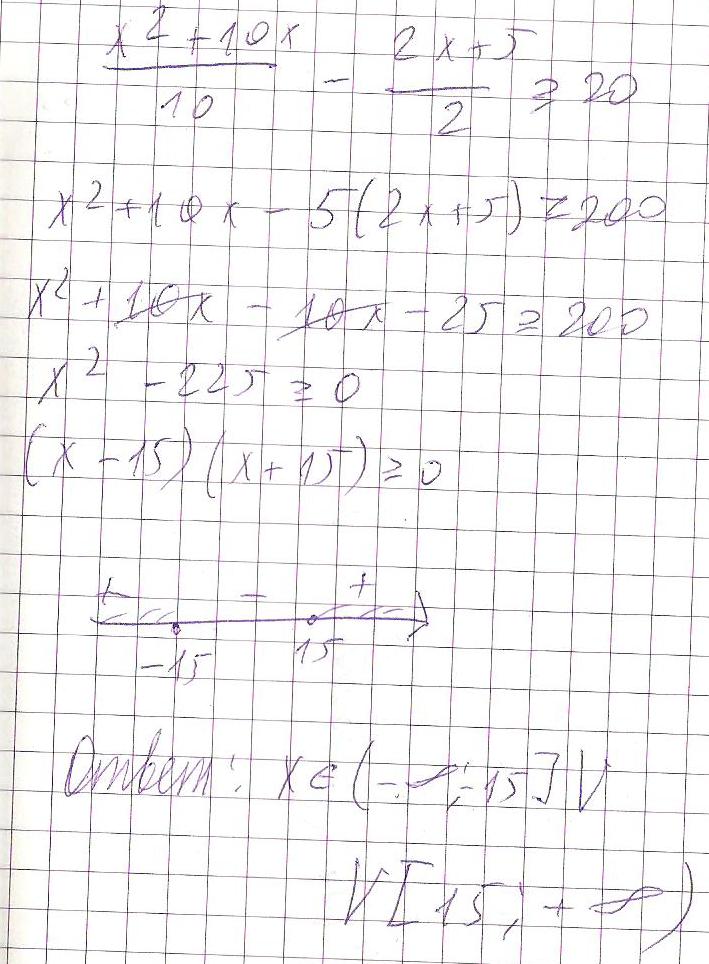 x² + 10x / 10 - 2x+5 / 2 ≥ 20
x² + 10x - 5(2x+5) ≥ 200
x² + 10x - 10x - 25 ≥ 200
x² - 225 ≥ 0
(x - 15)(x + 15) ≥ 0
+ - +
-15 15
Ответ: x ∈ (-∞; -15] V
V [15; +∞)